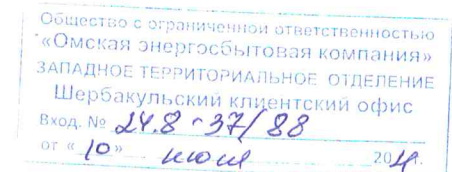 Общество с ограниченной ответственностью
«Омская энергосбытовая компания»
ЗАПАДНОЕ ТЕРРИТОРИАЛЬНОЕ ОТДЕЛЕНИЕ
Шербакульский клиентский офис
Вход. № 24.8-37/88
от «10» июля 20 г.